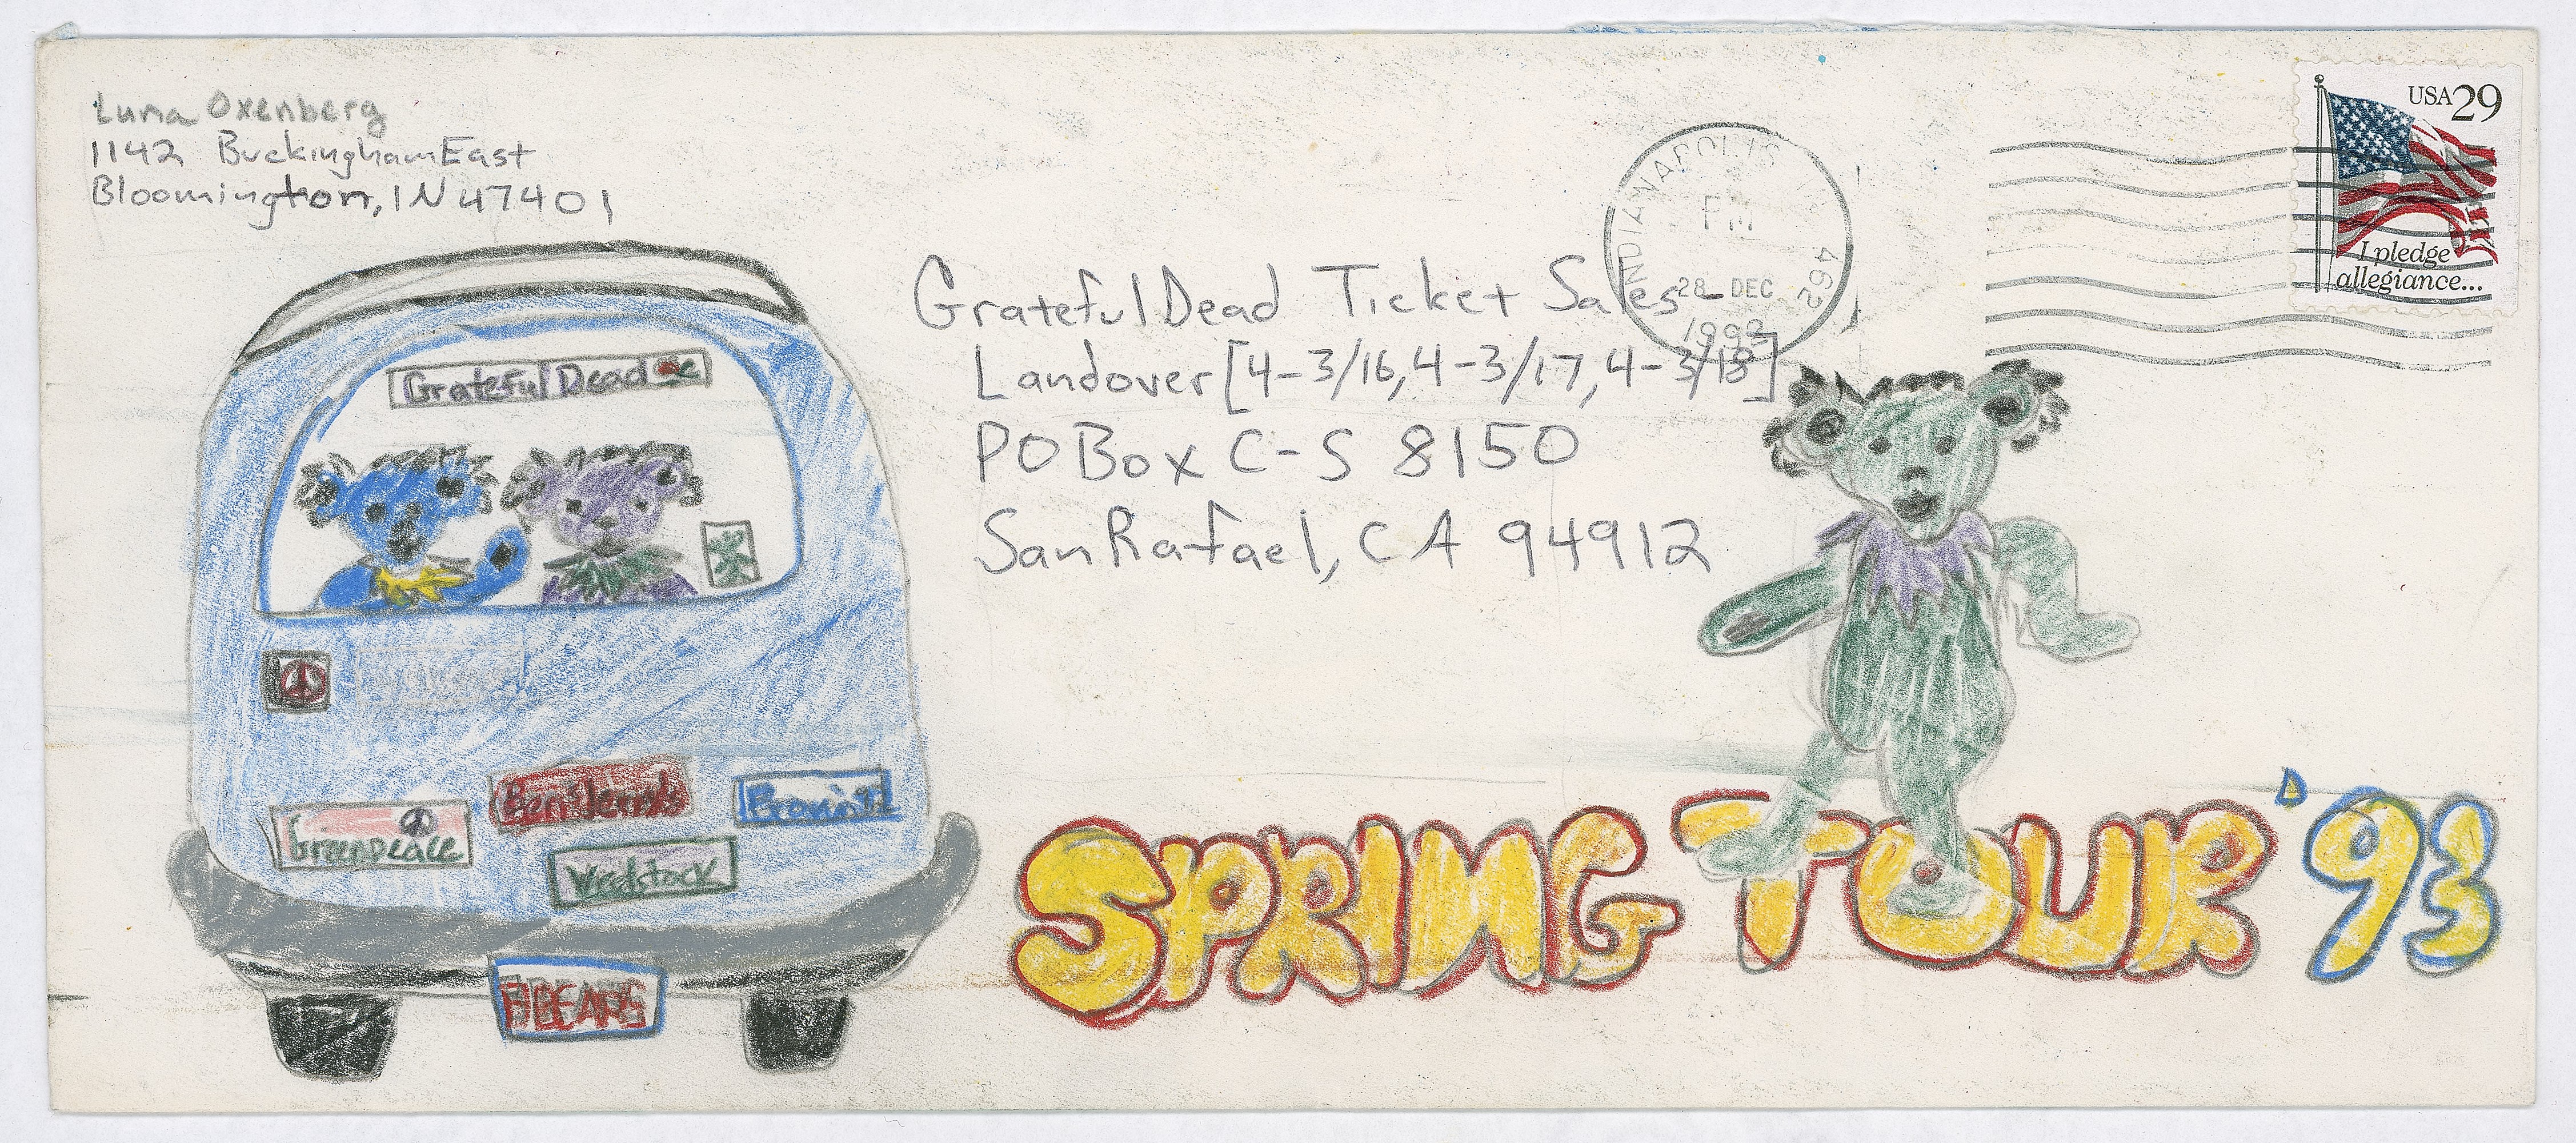 Luna Oxenberg
1142 Buckingham East
Bloomington, IN 47401
USA 29
I pledge
allegiance...
INDIANAPOLIS IN 462
PM
28 DEC
1992
Grateful Dead Ticket Sales
Landover [4-3/16, 4-3/17, 4-3/18]
PO Box C-S 8150
San Rafael, CA 94912
Grateful Dead
Ben & Jerry's
Greenpeace
Woodstock
BEARS
SPRING TOUR '93